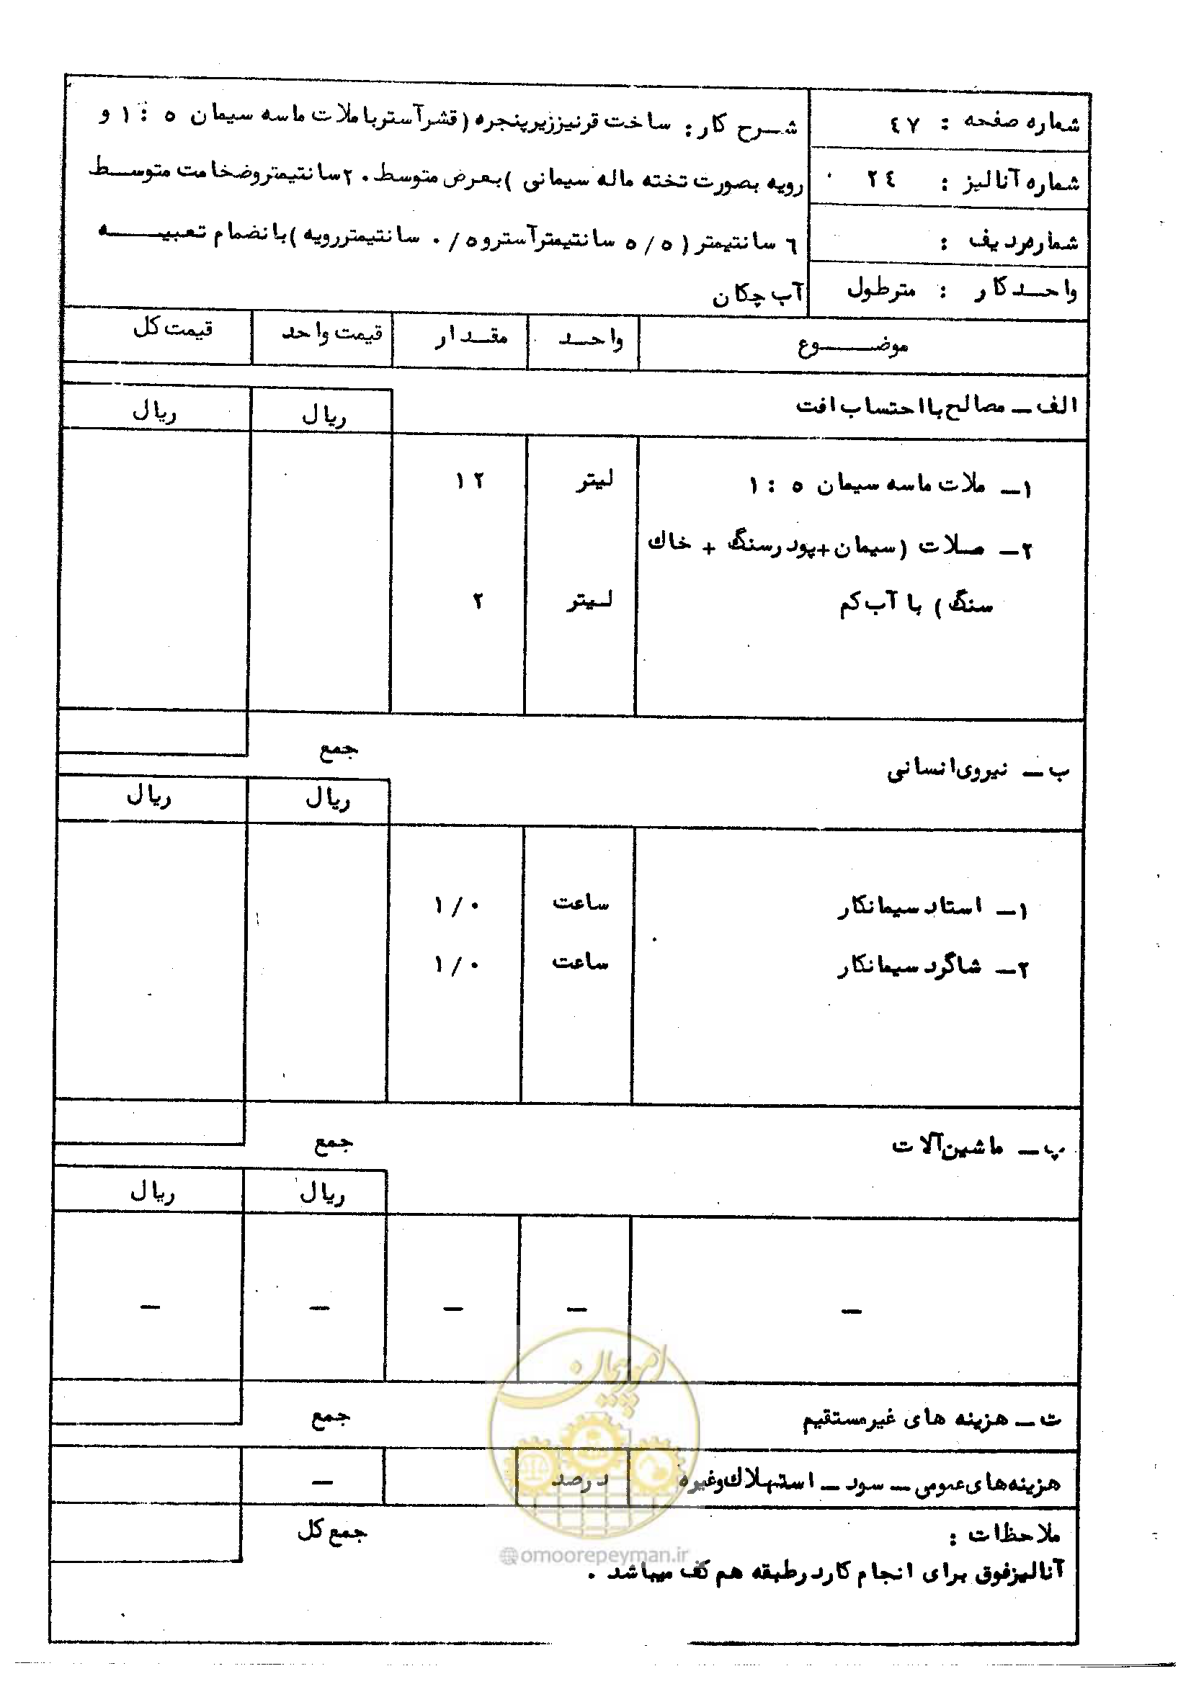 شماره صفحه : ٤٧
شماره آنالیز : ٢٤
شماره ردیف :
واحد کار : مترطول
شرح کار : ساخت قرنیز زیر پنجره ( قشر آستر با ملات ماسه سیمان ٥ : ١ و
رویه بصورت تخته ماله سیمانی ) بعرض متوسط ٢٠ سانتیمتر و ضخامت متوسط
٦ سانتیمتر ( ٥/٥ سانتیمتر آستر و ٠/٥ سانتیمتر رویه ) بانضمام تعبیه
آب چکان
موضوع واحد مقدار قیمت واحد قیمت کل
الف ـ مصالح با احتساب افت ریال ریال
١ـ ملات ماسه سیمان ٥ : ١ لیتر ١٢
٢ـ ملات ( سیمان + پودر سنگ + خاك
سنگ ) با آب کم لیتر ٢
جمع
ب ـ نیروی انسانی ریال ریال
١ـ استاد سیمانکار ساعت ١/٠
٢ـ شاگرد سیمانکار ساعت ١/٠
جمع
پ ـ ماشین آلات ریال ریال
ـ ـ ـ ـ ـ
جمع
ت ـ هزینه های غیر مستقیم
هزینه های عمومی ـ سود ـ استهلاك وغیره درصد ـ
جمع کل
ملاحظات :
آنالیز فوق برای انجام کار در طبقه هم کف میباشد .
امور پیمان
@omoorepeyman.ir